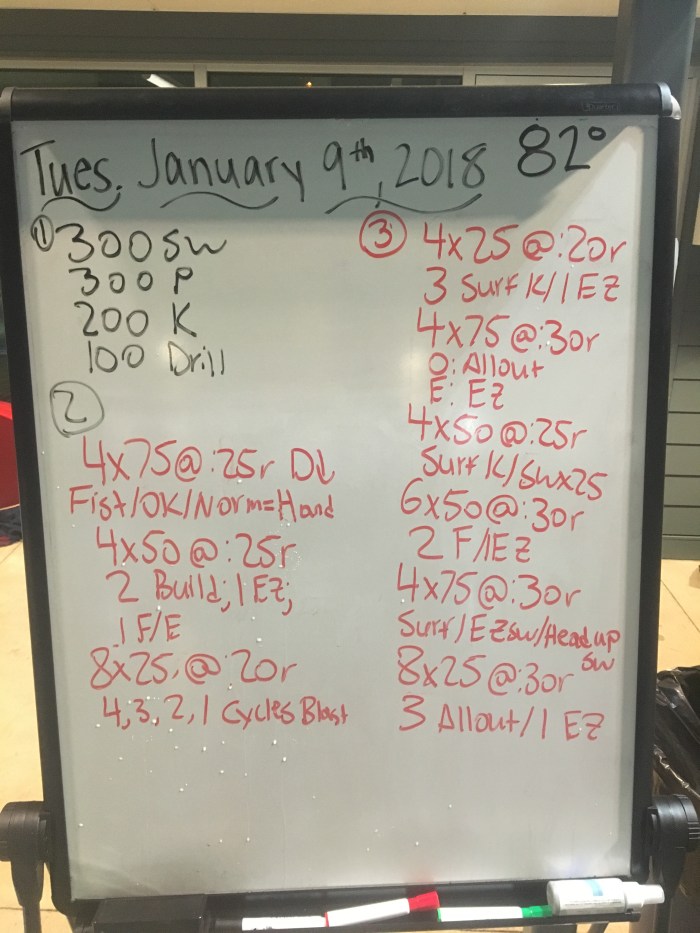 Tues. January 9th, 2018 82°
① 300 SW
300 P
200 K
100 Drill
②
4x75@:25r D↓
Fist/OK/Norm=Hand
4x50@:25r
2 Build; 1 EZ;
1 F/E
8x25@:20r
4,3,2,1 Cycles Blast
③ 4x25@:20r
3 Surf K/1 EZ
4x75@:30r
O: Allout
E: EZ
4x50@:25r
Surf K/Swx25
6x50@:30r
2 F/1EZ
4x75@:30r
Surf/EZsw/Head up
sw
8x25@:30r
3 Allout/1 EZ